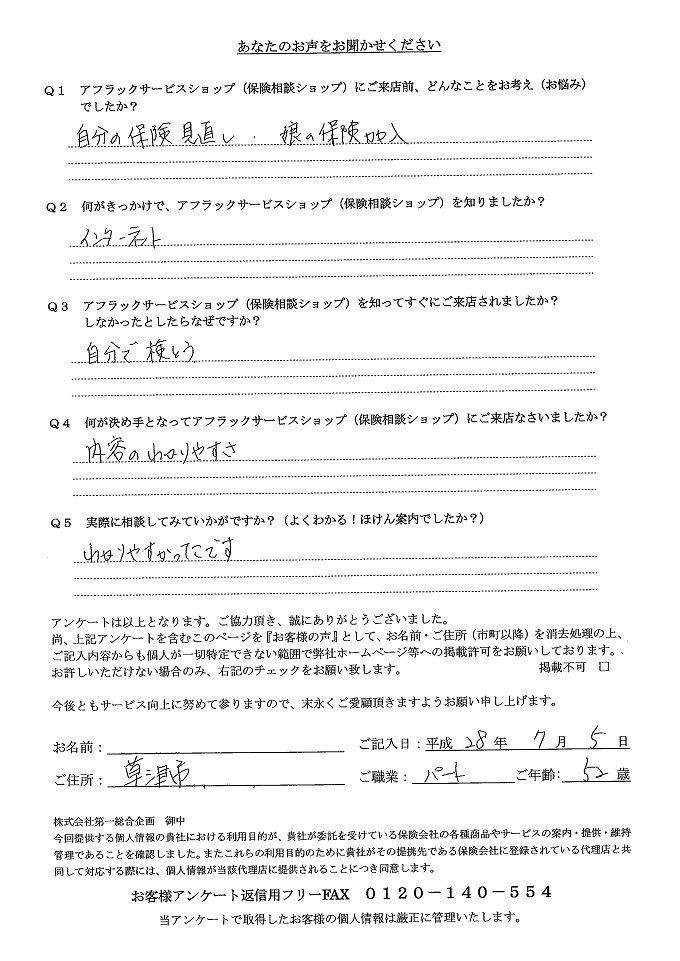 あなたのお声をお聞かせください
Q１ アフラックサービスショップ（保険相談ショップ）にご来店前、どんなことをお考え（お悩み）
でしたか？
自分の保険見直し . 娘の保険加入
Q２ 何がきっかけで、アフラックサービスショップ（保険相談ショップ）を知りましたか？
インターネット
Q３ アフラックサービスショップ（保険相談ショップ）を知ってすぐにご来店されましたか？
しなかったとしたらなぜですか？
自分で検とう
Q４ 何が決め手となってアフラックサービスショップ（保険相談ショップ）にご来店なさいましたか？
内容のわかりやすさ
Q５ 実際に相談してみていかがですか？（よくわかる！ほけん案内でしたか？）
わかりやすかったです
アンケートは以上となります。ご協力頂き、誠にありがとうございました。
尚、上記アンケートを含むこのページを『お客様の声』として、お名前・ご住所（市町以降）を消去処理の上、
ご記入内容からも個人が一切特定できない範囲で弊社ホームページ等への掲載許可をお願いしております。
お許しいただけない場合のみ、右記のチェックをお願い致します。 掲載不可 □
今後ともサービス向上に努めて参りますので、末永くご愛顧頂きますようお願い申し上げます。
お名前： ご記入日：平成 28 年 7 月 5 日
ご住所： 草津市 ご職業： パート ご年齢： 52 歳
株式会社第一総合企画 御中
今回提供する個人情報の貴社における利用目的が、貴社が委託を受けている保険会社の各種商品やサービスの案内・提供・維持
管理であることを確認しました。またこれらの利用目的のために貴社がその提携先である保険会社に登録されている代理店と共
同して対応する際には、個人情報が当該代理店に提供されることにつき同意します。
お客様アンケート返信用フリーFAX ０１２０－１４０－５５４
当アンケートで取得したお客様の個人情報は厳正に管理いたします。